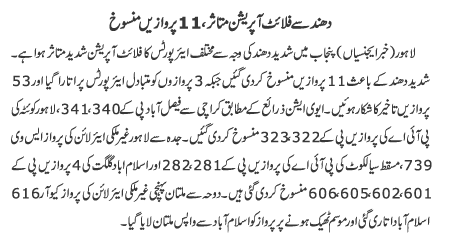 دھند سے فلائٹ آپریشن متاثر، 11 پروازیں منسوخ
لاہور (خبر ایجنسیاں) پنجاب میں شدید دھند کی وجہ سے مختلف ایئرپورٹس کا فلائٹ آپریشن شدید متاثر ہوا ہے۔
شدید دھند کے باعث 11 پروازیں منسوخ کردی گئیں جبکہ 3 پروازوں کو متبادل ایئرپورٹس پر اتارا گیا اور 53
پروازیں تاخیر کا شکار ہوئیں۔ ایوی ایشن ذرائع کے مطابق کراچی سے فیصل آباد پی کے 340،341، لاہور کوئٹہ کی
پی آئی اے کی پروازیں پی کے 322،323 منسوخ کردی گئیں۔ جدہ سے لاہور غیر ملکی ایئر لائن کی پرواز ایس وی
739، مسقط سیالکوٹ کی پی آئی اے کی پروازیں پی کے 281،282 اور اسلام آباد گلگت کی 4 پروازیں پی کے
601،602،605،606 منسوخ کردی گئی ہیں۔ دوحہ سے ملتان پہنچی غیر ملکی ایئر لائن کی پرواز کیو آر 616
اسلام آباد اتاری گئی اور موسم ٹھیک ہونے پر پرواز کو اسلام آباد سے واپس ملتان لایا گیا۔